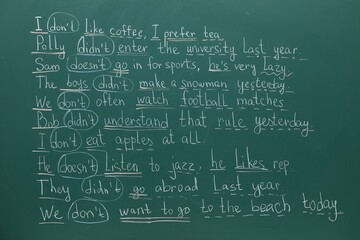 I don't like coffee, I prefer tea
Polly didn't enter the university last year.
Sam doesn't go in for sports, he's very lazy
The boys didn't make a snowman yesterday.
We don't often watch football matches
Bob didn't understand that rule yesterday
I don't eat apples at all
He doesn't listen to jazz, he likes rep
They didn't go abroad last year
We don't want to go to the beach today.